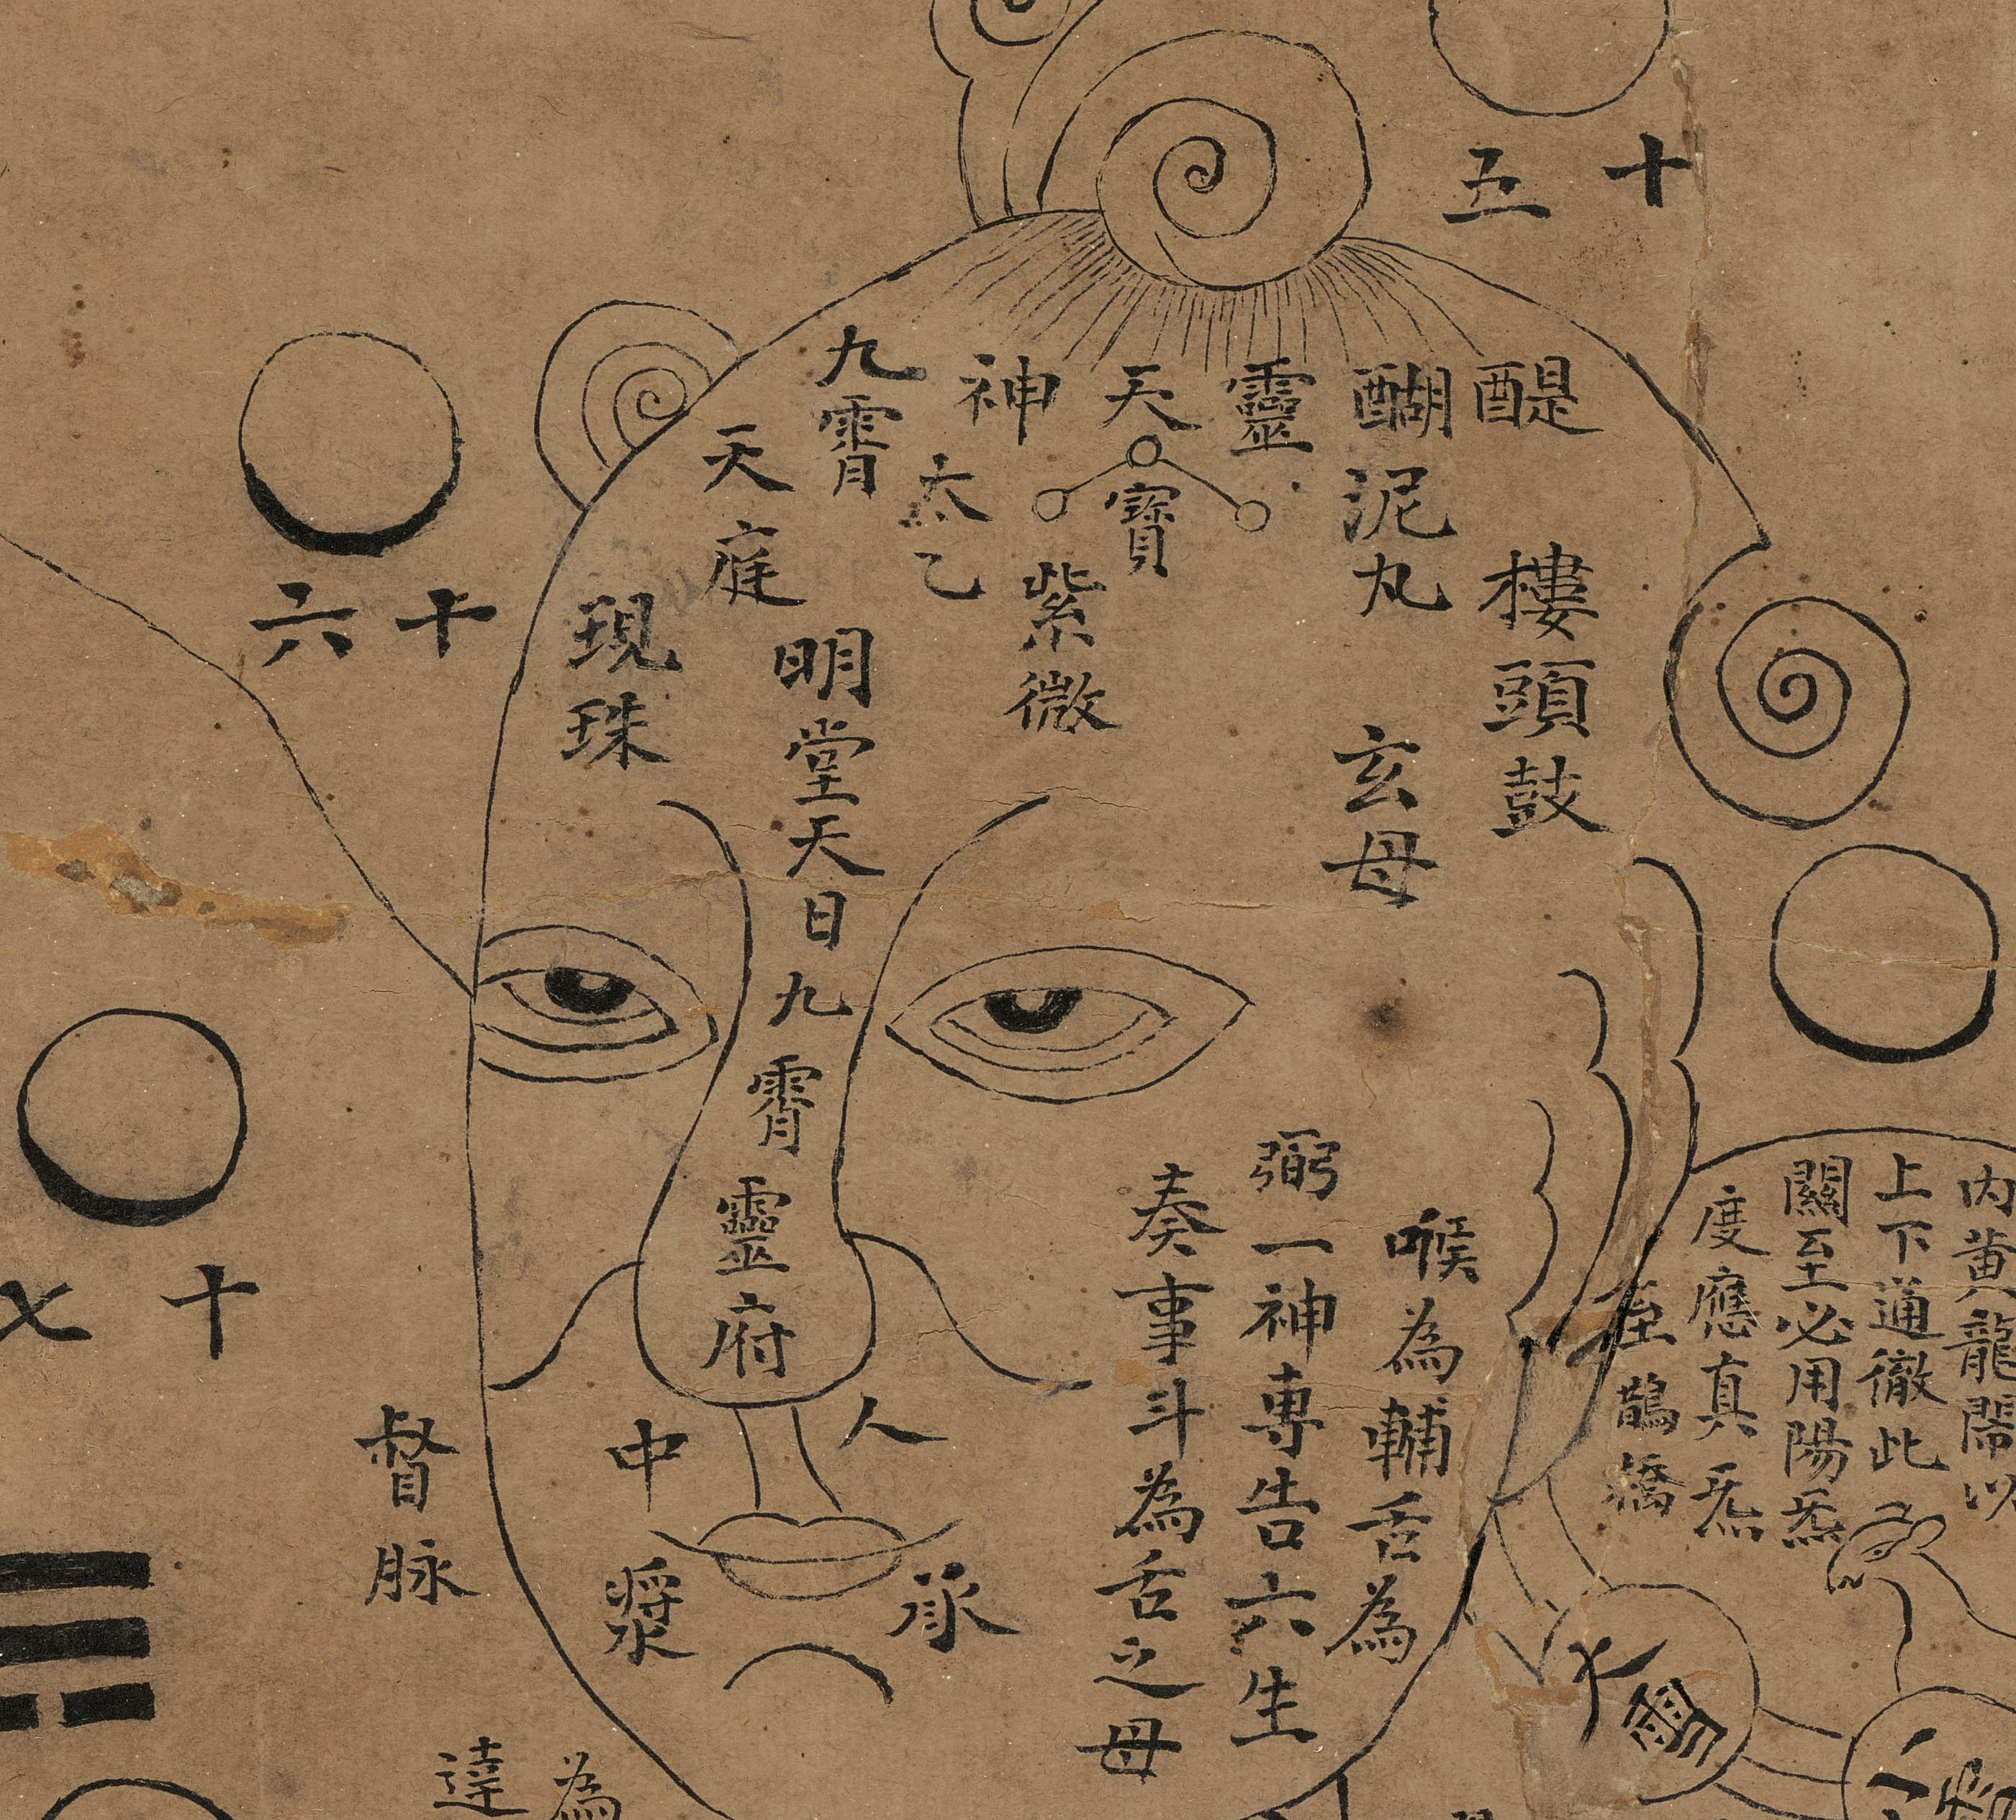 十五
醍醐
靈
天
神
九霄
泥丸
寶
太乙
天庭
樓頭鼓
紫微
現珠
十六
明堂天日九霄靈府
玄母
內黃龍閙以
上下通徹此
關至必用陽炁
度應真炁
至鵲橋
喉為輔舌為
弼一神專告六生
奏事斗為舌之母
十七
人中
承漿
督脉
達
為
雪